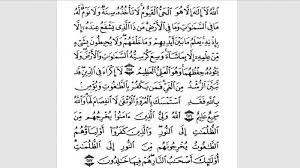 اللَّهُ لَا إِلَٰهَ إِلَّا هُوَ الْحَيُّ الْقَيُّومُ لَا تَأْخُذُهُ سِنَةٌ وَلَا نَوْمٌ لَهُ
مَا فِي السَّمَاوَاتِ وَمَا فِي الْأَرْضِ مَنْ ذَا الَّذِي يَشْفَعُ عِنْدَهُ إِلَّا
بِإِذْنِهِ يَعْلَمُ مَا بَيْنَ أَيْدِيهِمْ وَمَا خَلْفَهُمْ وَلَا يُحِيطُونَ بِشَيْءٍ
مِنْ عِلْمِهِ إِلَّا بِمَا شَاءَ وَسِعَ كُرْسِيُّهُ السَّمَاوَاتِ وَالْأَرْضَ وَلَا
يَئُودُهُ حِفْظُهُمَا وَهُوَ الْعَلِيُّ الْعَظِيمُ لَا إِكْرَاهَ فِي الدِّينِ قَدْ
تَبَيَّنَ الرُّشْدُ مِنَ الْغَيِّ فَمَنْ يَكْفُرْ بِالطَّاغُوتِ وَيُؤْمِنْ
بِاللَّهِ فَقَدِ اسْتَمْسَكَ بِالْعُرْوَةِ الْوُثْقَىٰ لَا انْفِصَامَ لَهَا وَاللَّهُ
سَمِيعٌ عَلِيمٌ اللَّهُ وَلِيُّ الَّذِينَ آمَنُوا يُخْرِجُهُمْ مِنَ
الظُّلُمَاتِ إِلَى النُّورِ وَالَّذِينَ كَفَرُوا أَوْلِيَاؤُهُمُ
الطَّاغُوتُ يُخْرِجُونَهُمْ مِنَ النُّورِ إِلَى الظُّلُمَاتِ
أُولَٰئِكَ أَصْحَابُ النَّارِ هُمْ فِيهَا خَالِدُونَ